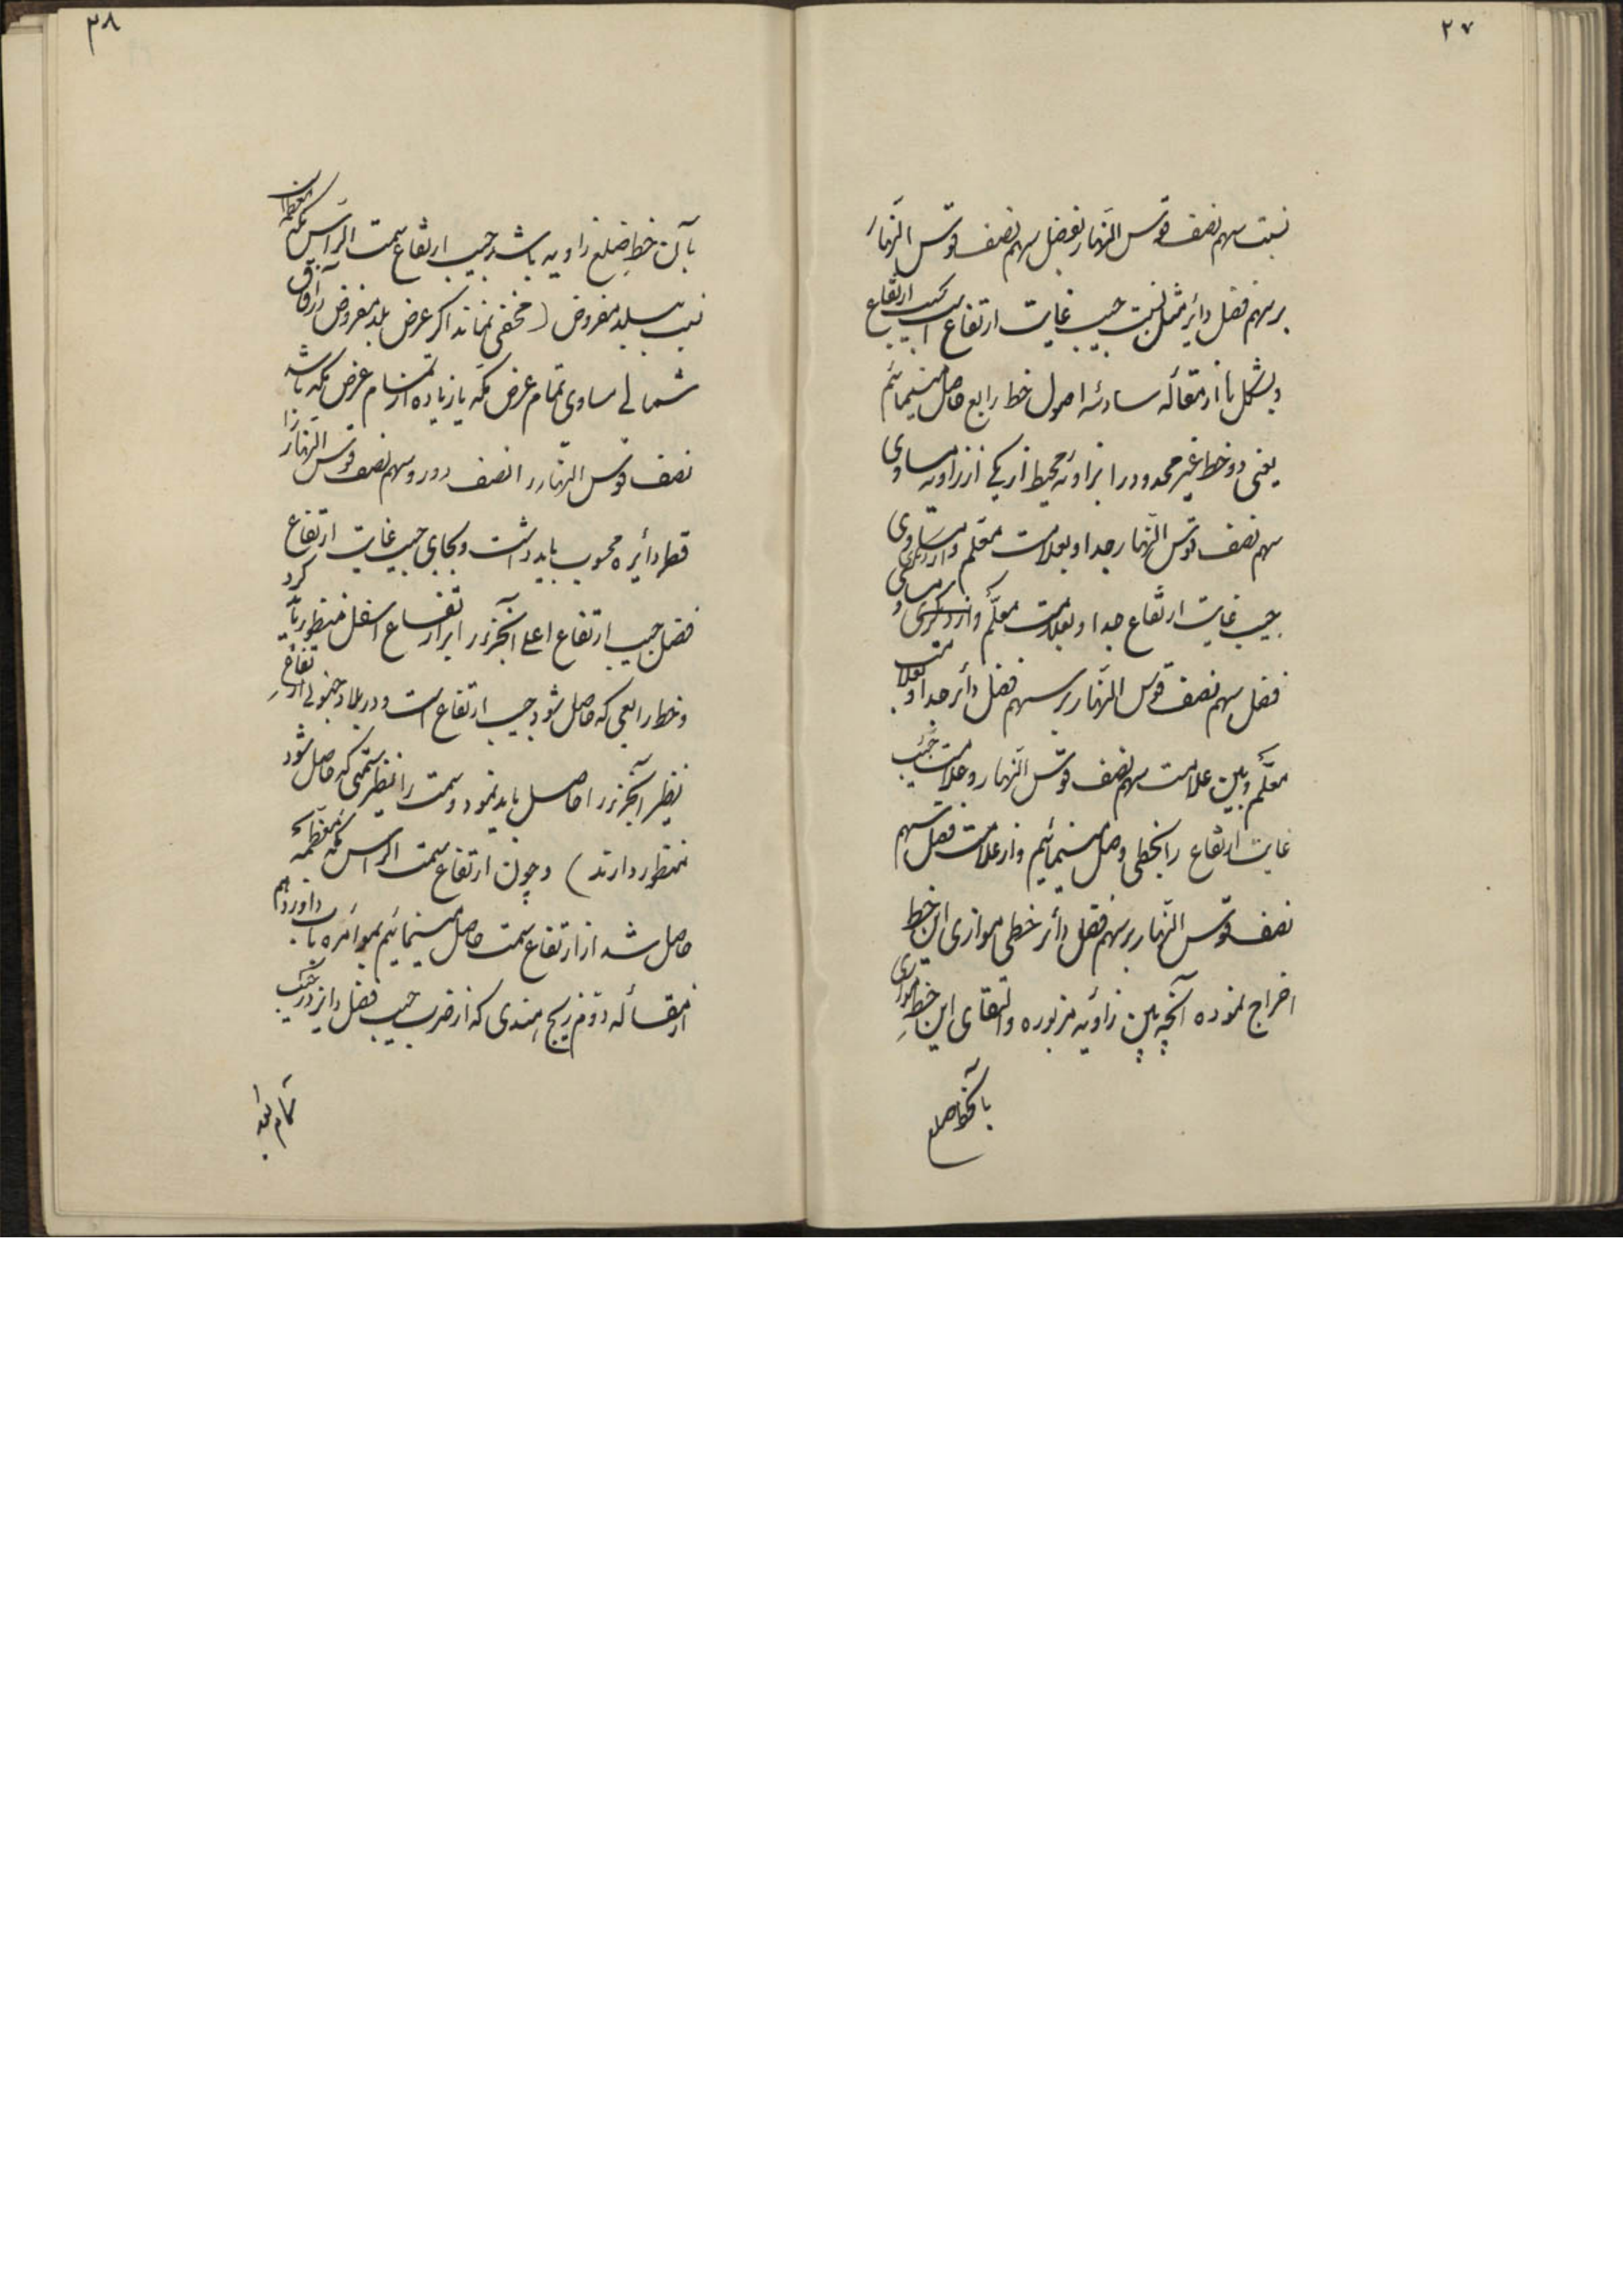 ۲۷
نسبت سهم نصف قوس النهار بفضل سهم نصف قوس النهار
بر سهم فضل دائر مثل نسبت جیب غایت ارتفاع است بجیب ارتفاع
و بشکل یا از مقاله سادسه اصول خط رابع حاصل مینمائیم
یعنی دو خط غیر محدود را بزاویه محیط از یکی از زاویه مساوی
سهم نصف قوس النهار جدا و بعلامت معلم و از دیگری مساوی
جیب غایت ارتفاع جدا و بعلامت معلم و از دیگری مساوی
فضل سهم نصف قوس النهار بر سهم فضل دائر جدا و بعلامت
معلم و بین علامت سهم نصف قوس النهار و علامت جیب
غایت ارتفاع را بخطی وصل مینمائیم و از علامت فضل سهم
نصف قوس النهار بر سهم فضل دائر خطی موازی این خط
اخراج نموده آنچه بین زاویه مزبوره و التقای این خط موازی
بآنخط ضلع
۲۸
بآن خط ضلع زاویه باشد جیب ارتفاع سمت الراس مکه معظمه است
نسبت ببلد مفروض (مخفی نماند اگر عرض بلد مفروض در آفاق
شمالی مساوی تمام عرض مکه یا زیاده از تمام عرض مکه باشد
نصف قوس النهار را نصف دور و سهم نصف قوس النهار را
قطر دائره محسوب باید داشت و بجای جیب غایت ارتفاع
فضل جیب ارتفاع اعلی آنجزء را بر ارتفاع اسفل منظور باید کرد
و خط رابعی که حاصل شود جیب ارتفاع است و در بلاد جنوبی ارتفاع
نظیر آنجزء را حاصل باید نمود و سمت را نظیر سمتی که حاصل شود
منظور دارند) و چون ارتفاع سمت الراس مکه معظمه
حاصل شد از ارتفاع سمت حاصل مینمائیم بموامره باب دوازدهم
از مقاله دوم زیج هندی که از ضرب جیب فضل دائر در جیب
تمام بعد